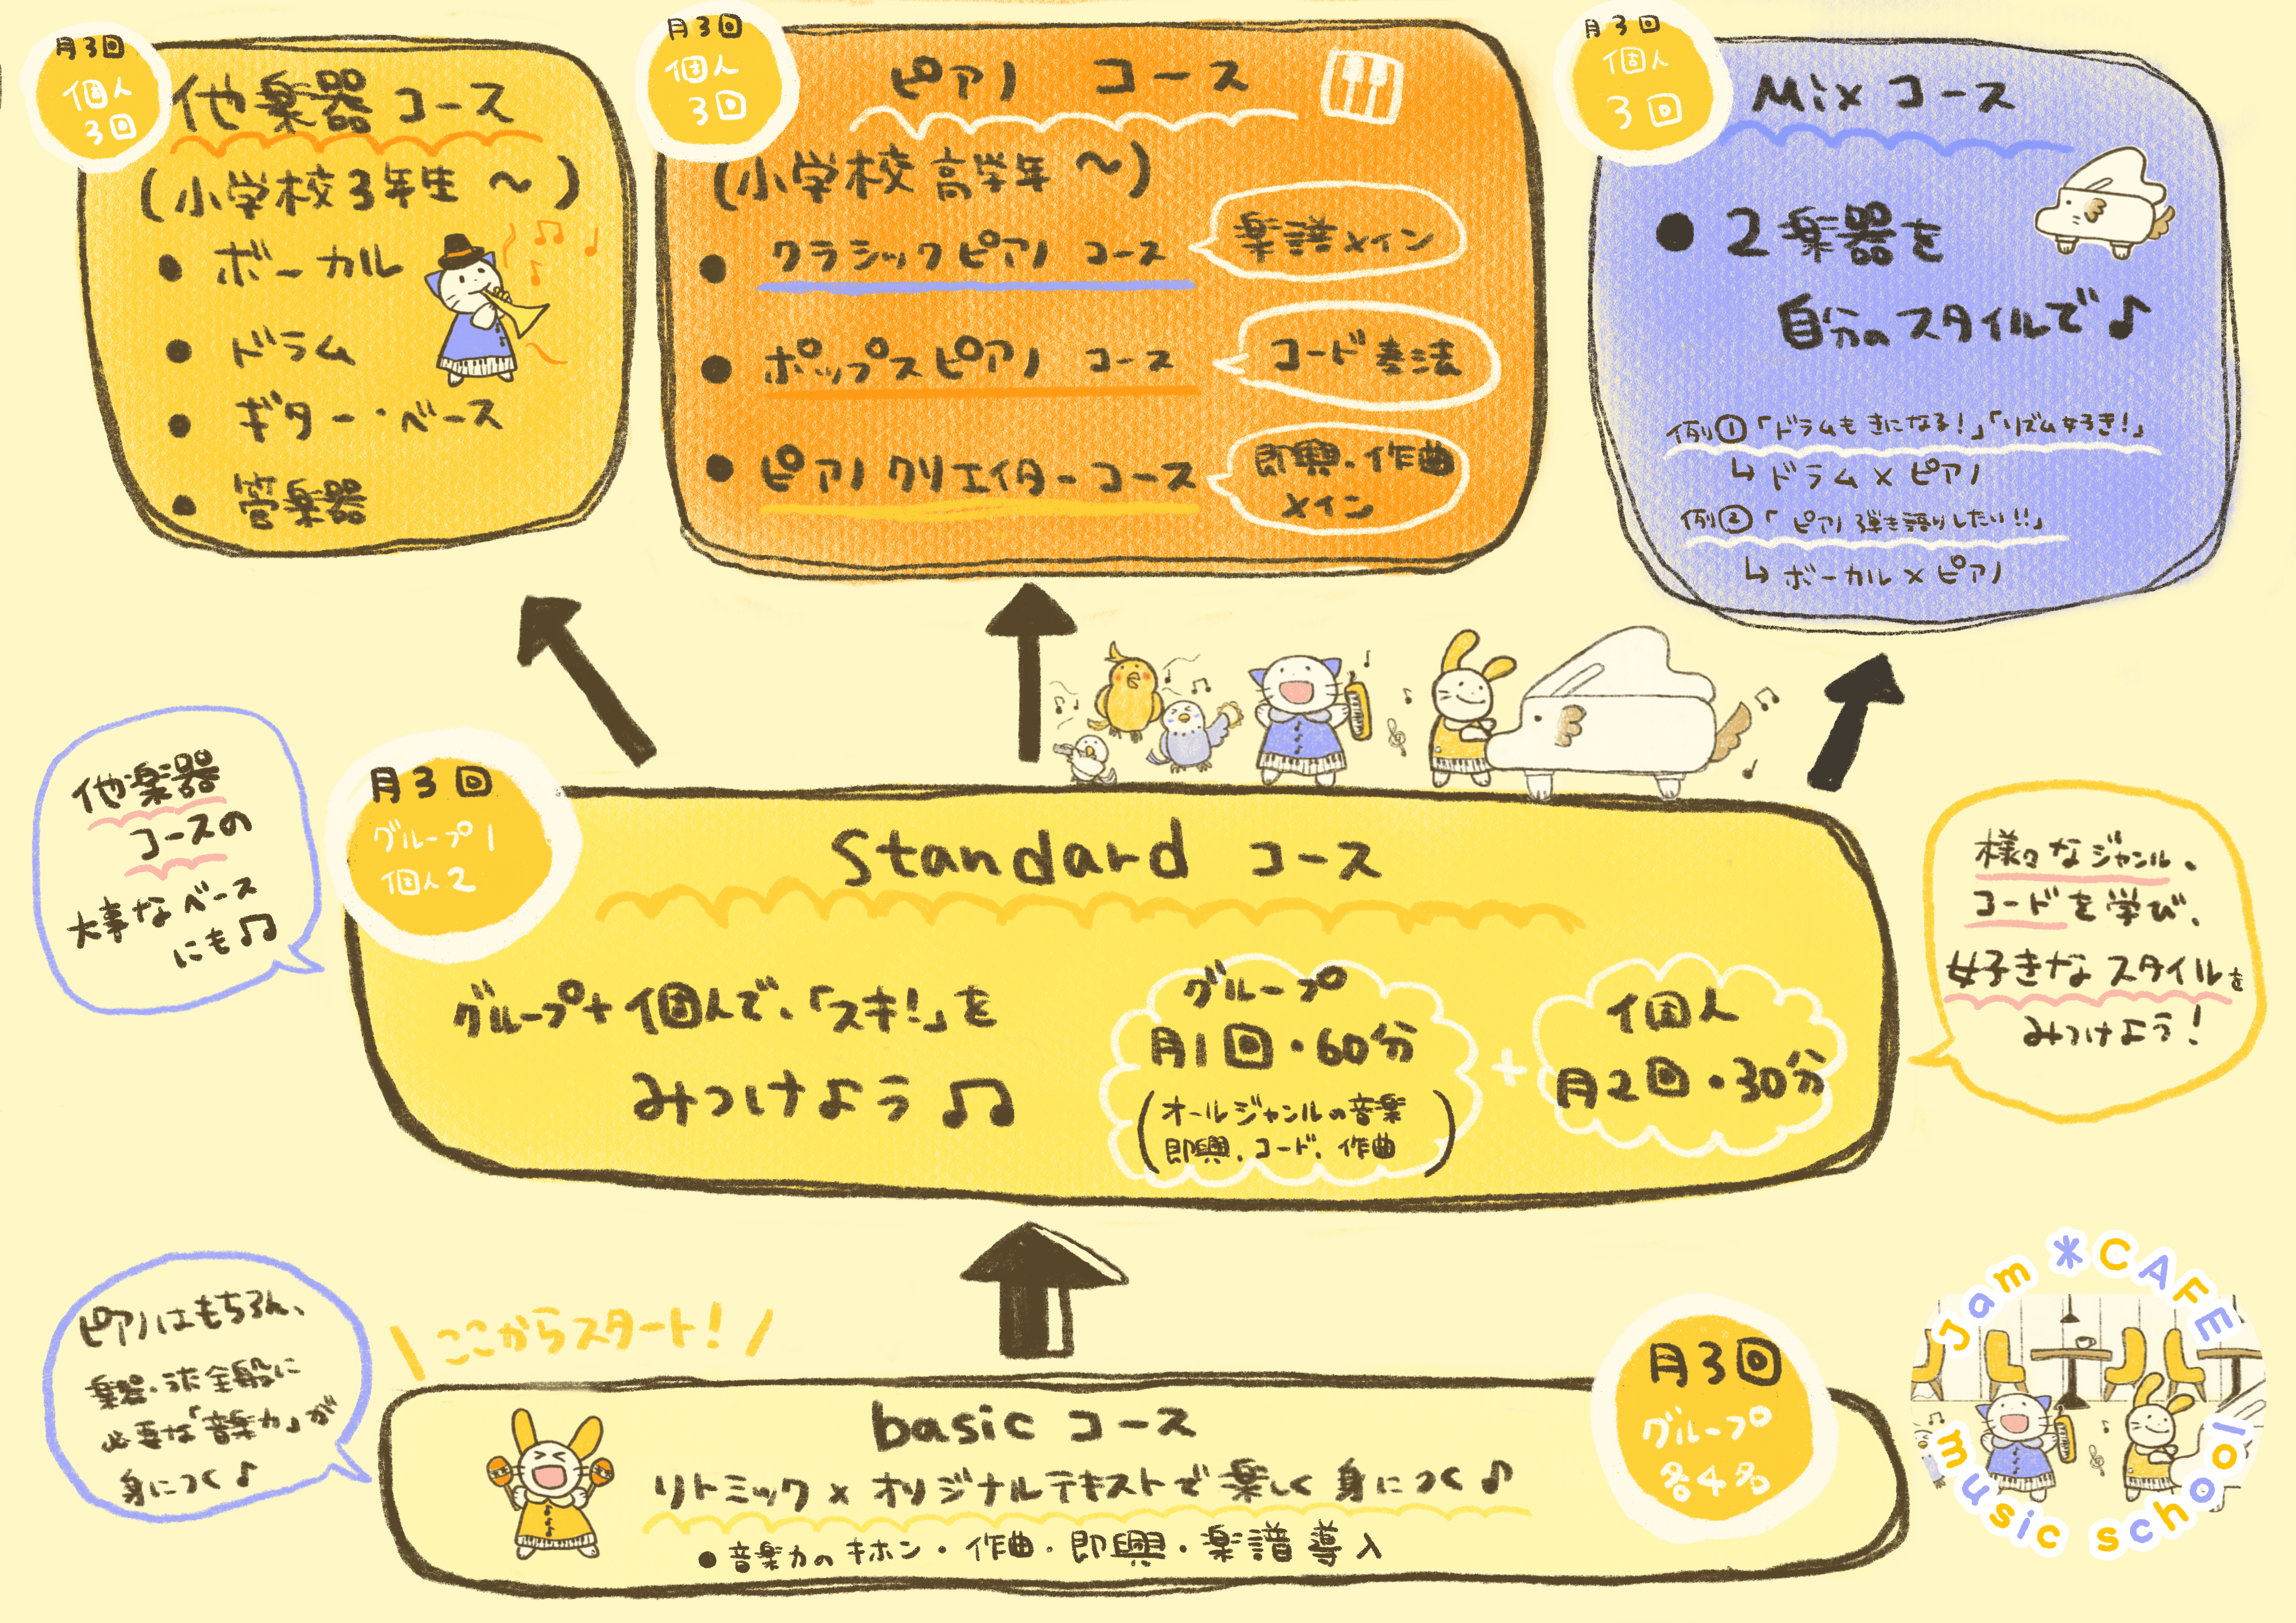 月3回
個人
3回
他楽器コース
(小学校3年生 〜)
● ボーカル
● ドラム
● ギター・ベース
● 管楽器
月3回
個人
3回
ピアノ コース
(小学校 高学年 〜)
● クラシックピアノ コース
楽譜メイン
● ポップスピアノ コース
コード奏法
● ピアノクリエイターコース
即興・作曲
メイン
月3回
個人
3回
Mixコース
● 2楽器を
自分のスタイルで♪
例①「ドラムもきになる!」「リズム好き!」
↳ ドラム×ピアノ
例②「ピアノ弾き語りしたい!!」
↳ ボーカル×ピアノ
他楽器
コースの
大事なベース
にも♫
月3回
グループ1
個人2
Standard コース
グループ+個人で、「スキ!」を
みつけよう ♫
グループ
月1回・60分
(オールジャンルの音楽
即興、コード、作曲)
+
個人
月2回・30分
様々なジャンル、
コードを学び、
好きなスタイルを
みつけよう!
ピアノはもちろん、
楽器・歌全般に
必要な「音楽力」が
身につく♪
\ ここからスタート! /
basic コース
リトミック×オリジナルテキストで楽しく身につく♪
● 音楽力のキホン・作曲・即興・楽譜導入
月3回
グループ
各4名
Jam *CAFE
music school